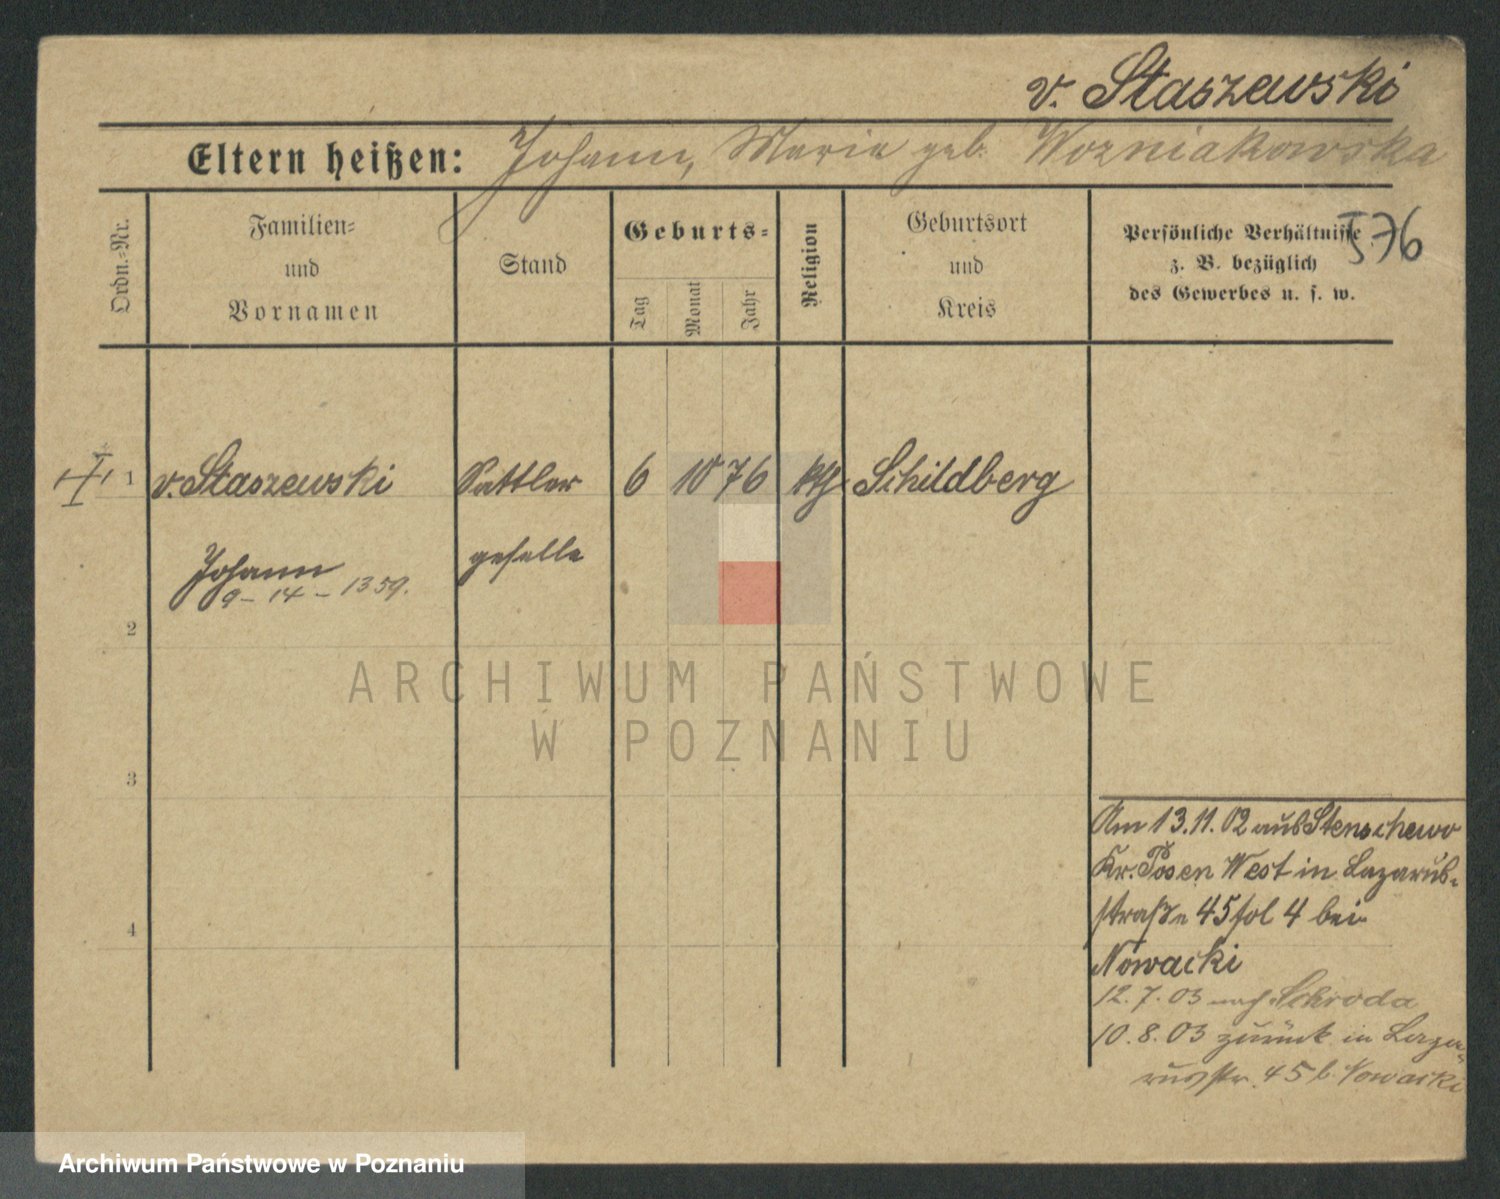 v. Staszewski
Eltern heißen: Johann, Maria geb. Wozniakowska
Ordn.-Nr.
Familien-
und
Vornamen
Stand
Geburts-
Tag
Monat
Jahr
Religion
Geburtsort
und
Kreis
Persönliche Verhältnisse
z. B. bezüglich
des Gewerbes u. s. w.
576
1 v. Staszewski Sattler 6 10 76 kth. Schildberg
Johann geselle
9 - 14 - 1359.
2
3
4
Am 13.11.02 aus Stenschewo
Kr. Posen West in Lazarus-
straße 45 fol 4 bei
Nowacki
12.7.03 nach Schroda
10.8.03 zurück in Laza-
russtr. 45 b. Nowacki
ARCHIWUM PAŃSTWOWE
W POZNANIU
Archiwum Państwowe w Poznaniu